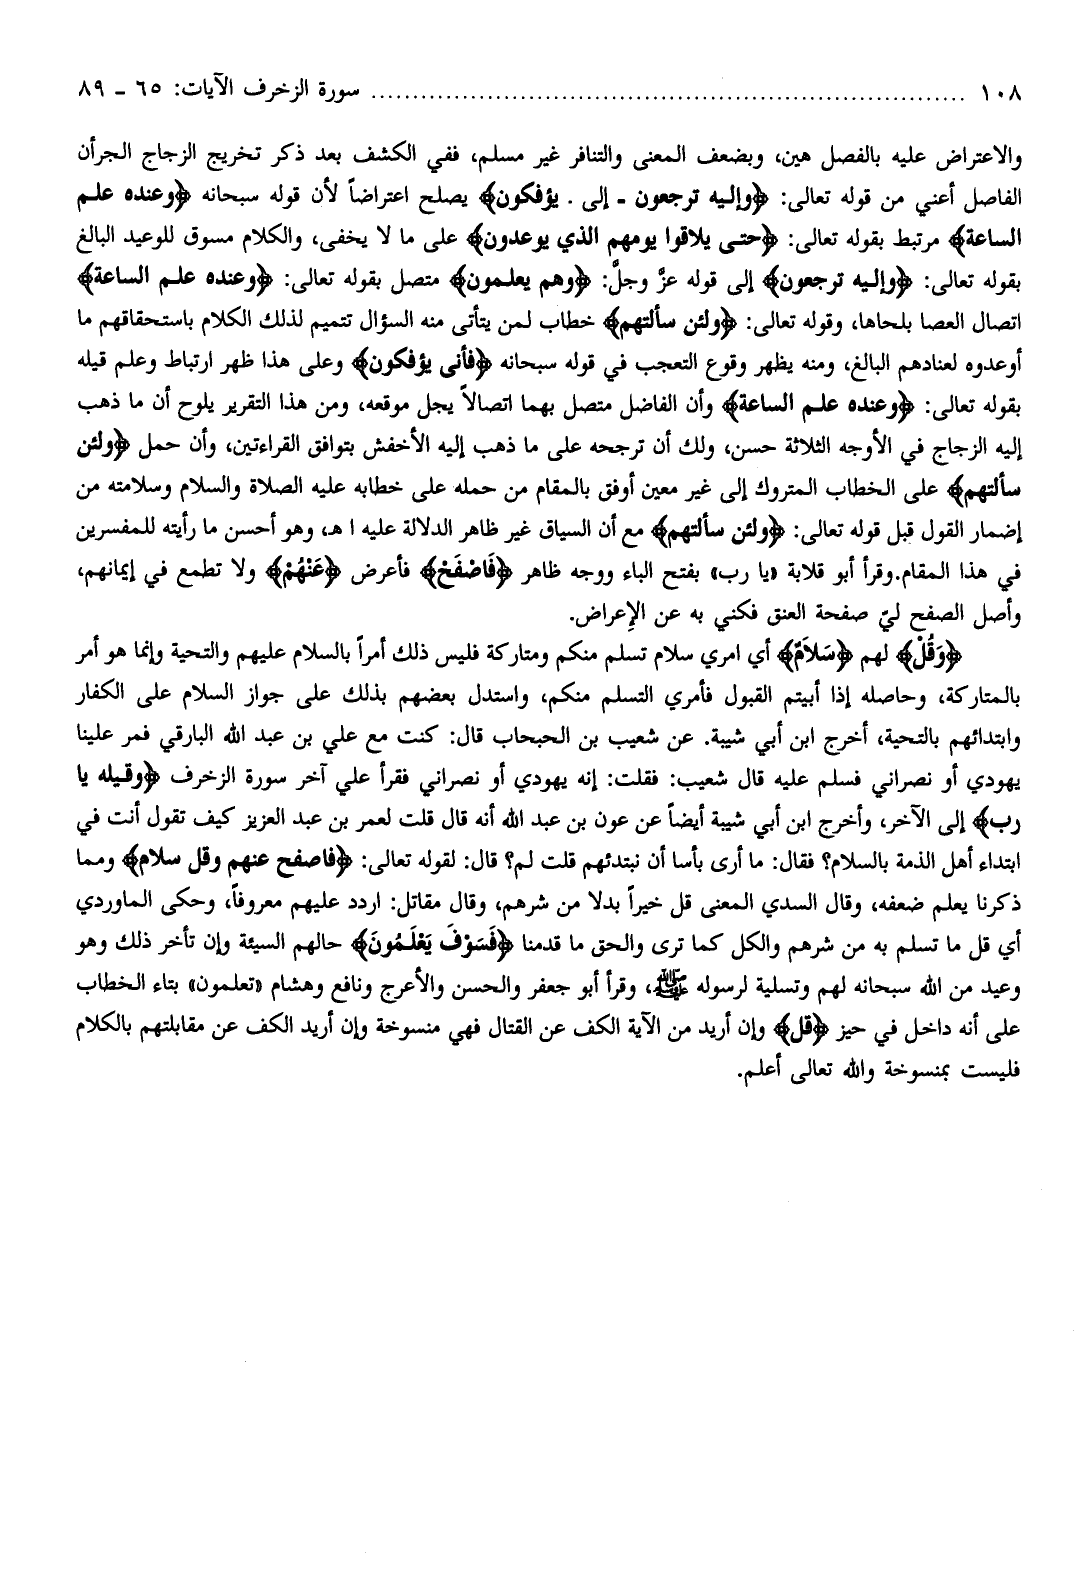 ١٠٨ ........................................................................ سورة الزخرف الآيات: ٦٥ ـ ٨٩
والاعتراض عليه بالفصل هين، وبضعف المعنى والتنافر غير مسلم، ففي الكشف بعد ذكر تخريج الزجاج الجرأن
الفاصل أعني من قوله تعالى: ﴿وإليه ترجعون ـ إلى . يؤفكون﴾ يصلح اعتراضاً لأن قوله سبحانه ﴿وعنده علم
الساعة﴾ مرتبط بقوله تعالى: ﴿حتى يلاقوا يومهم الذي يوعدون﴾ على ما لا يخفى، والكلام مسوق للوعيد البالغ
بقوله تعالى: ﴿وإليه ترجعون﴾ إلى قوله عزَّ وجلَّ: ﴿وهم يعلمون﴾ متصل بقوله تعالى: ﴿وعنده علم الساعة﴾
اتصال العصا بلحاها، وقوله تعالى: ﴿ولئن سألتهم﴾ خطاب لمن يتأتى منه السؤال تتميم لذلك الكلام باستحقاقهم ما
أوعدوه لعنادهم البالغ، ومنه يظهر وقوع التعجب في قوله سبحانه ﴿فأنى يؤفكون﴾ وعلى هذا ظهر ارتباط وعلم قيله
بقوله تعالى: ﴿وعنده علم الساعة﴾ وأن الفاضل متصل بهما اتصالاً يجل موقعه، ومن هذا التقرير يلوح أن ما ذهب
إليه الزجاج في الأوجه الثلاثة حسن، ولك أن ترجحه على ما ذهب إليه الأخفش بتوافق القراءتين، وأن حمل ﴿ولئن
سألتهم﴾ على الخطاب المتروك إلى غير معين أوفق بالمقام من حمله على خطابه عليه الصلاة والسلام وسلامته من
إضمار القول قبل قوله تعالى: ﴿ولئن سألتهم﴾ مع أن السياق غير ظاهر الدلالة عليه ا هـ، وهو أحسن ما رأيته للمفسرين
في هذا المقام.وقرأ أبو قلابة «يا رب» بفتح الباء ووجه ظاهر ﴿فَاصْفَحْ﴾ فأعرض ﴿عَنْهُمْ﴾ ولا تطمع في إيمانهم،
وأصل الصفح ليّ صفحة العنق فكني به عن الإعراض.
﴿وَقُلْ﴾ لهم ﴿سَلاَمٌ﴾ أي امري سلام تسلم منكم ومتاركة فليس ذلك أمراً بالسلام عليهم والتحية وإنما هو أمر
بالمتاركة، وحاصله إذا أبيتم القبول فأمري التسلم منكم، واستدل بعضهم بذلك على جواز السلام على الكفار
وابتدائهم بالتحية، أخرج ابن أبي شيبة. عن شعيب بن الحبحاب قال: كنت مع علي بن عبد الله البارقي فمر علينا
يهودي أو نصراني فسلم عليه قال شعيب: فقلت: إنه يهودي أو نصراني فقرأ علي آخر سورة الزخرف ﴿وقيله يا
رب﴾ إلى الآخر، وأخرج ابن أبي شيبة أيضاً عن عون بن عبد الله أنه قال قلت لعمر بن عبد العزيز كيف تقول أنت في
ابتداء أهل الذمة بالسلام؟ فقال: ما أرى بأسا أن نبتدئهم قلت لم؟ قال: لقوله تعالى: ﴿فاصفح عنهم وقل سلام﴾ ومما
ذكرنا يعلم ضعفه، وقال السدي المعنى قل خيراً بدلا من شرهم، وقال مقاتل: اردد عليهم معروفاً، وحكى الماوردي
أي قل ما تسلم به من شرهم والكل كما ترى والحق ما قدمنا ﴿فَسَوْفَ يَعْلَمُونَ﴾ حالهم السيئة وإن تأخر ذلك وهو
وعيد من الله سبحانه لهم وتسلية لرسوله ﷺ، وقرأ أبو جعفر والحسن والأعرج ونافع وهشام «تعلمون» بتاء الخطاب
على أنه داخل في حيز ﴿قل﴾ وإن أريد من الآية الكف عن القتال فهي منسوخة وإن أريد الكف عن مقابلتهم بالكلام
فليست بمنسوخة والله تعالى أعلم.